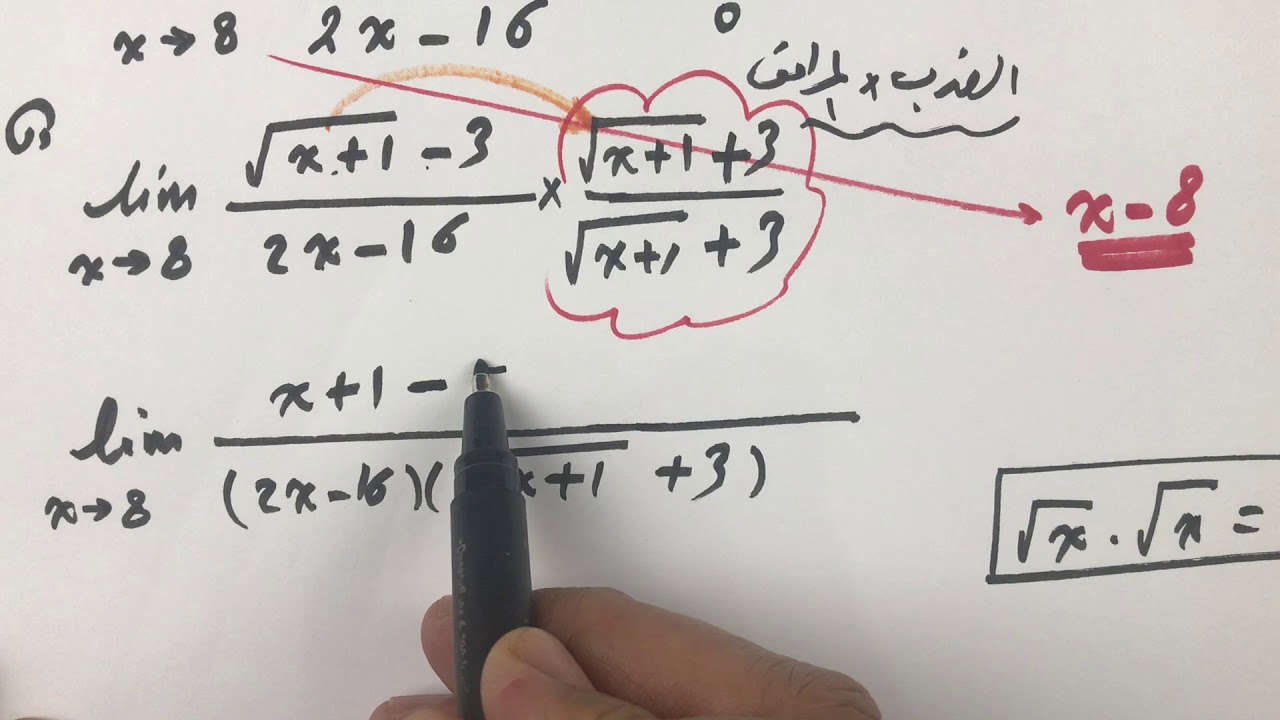 x→8 2x-16 0
الضرب × المرافق
lim x→8 (√(x+1) - 3)/(2x-16) × (√(x+1) + 3)/(√(x+1) + 3)
x-8
lim x→8 (x+1 - )/((2x-16)(√(x+1) + 3))
√x . √x =